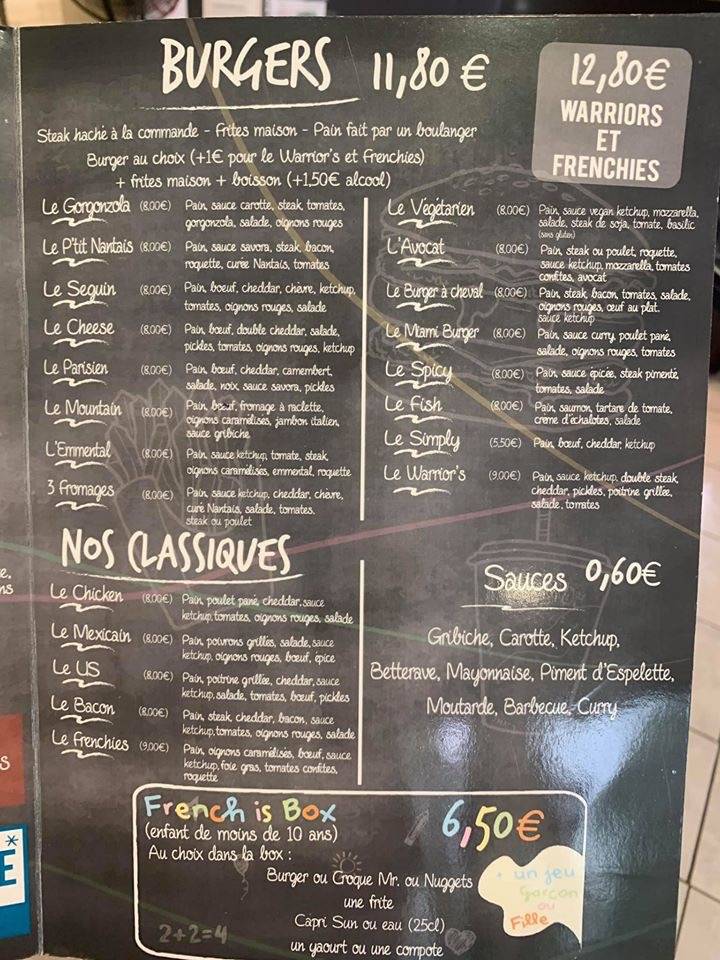 BURGERS 11,80 €
12,80€
WARRIORS
ET
FRENCHIES
Steak haché à la commande - Frites maison - Pain fait par un boulanger
Burger au choix (+1€ pour le Warrior's et Frenchies)
+ frites maison + boisson (+1,50€ alcool)
Le Gorgonzola (8,00€) Pain, sauce carotte, steak, tomates,
gorgonzola, salade, oignons rouges
Le P'tit Nantais (8,00€) Pain, sauce savora, steak, bacon,
roquette, curée Nantais, tomates
Le Seguin (8,00€) Pain, boeuf, cheddar, chèvre, ketchup,
tomates, oignons rouges, salade
Le Cheese (8,00€) Pain, boeuf, double cheddar, salade,
pickles, tomates, oignons rouges, ketchup
Le Parisien (8,00€) Pain, boeuf, cheddar, camembert,
salade, noix, sauce savora, pickles
Le Mountain (8,00€) Pain, boeuf, fromage à raclette,
oignons caramélisés, jambon italien,
sauce gribiche
L'Emmental (8,00€) Pain, sauce ketchup, tomate, steak,
oignons caramélisés, emmental, roquette
3 fromages (8,00€) Pain, sauce ketchup, cheddar, chèvre,
curé Nantais, salade, tomates,
steak ou poulet
Le Végétarien (8,00€) Pain, sauce vegan ketchup, mozzarella,
salade, steak de soja, tomate, basilic
(sans gluten)
L'Avocat (8,00€) Pain, steak ou poulet, roquette,
sauce ketchup, mozzarella, tomates
confites, avocat
Le Burger à cheval (8,00€) Pain, steak, bacon, tomates, salade,
oignons rouges, œuf au plat,
sauce ketchup
Le Miami Burger (8,00€) Pain, sauce curry, poulet pané,
salade, oignons rouges, tomates
Le Spicy (8,00€) Pain, sauce épicée, steak pimenté,
tomates, salade
Le Fish (8,00€) Pain, saumon, tartare de tomate,
crème d'échalotes, salade
Le Simply (5,50€) Pain, bœuf, cheddar, ketchup
Le Warrior's (9,00€) Pain, sauce ketchup, double steak,
cheddar, pickles, poitrine grillée,
salade, tomates
NOS CLASSIQUES
Le Chicken (8,00€) Pain, poulet pané, cheddar, sauce
ketchup, tomates, oignons rouges, salade
Le Mexicain (8,00€) Pain, poivrons grillés, salade, sauce
ketchup, oignons rouges, bœuf, épice
Le US (8,00€) Pain, poitrine grillée, cheddar, sauce
ketchup, salade, tomates, bœuf, pickles
Le Bacon (8,00€) Pain, steak, cheddar, bacon, sauce
ketchup, tomates, oignons rouges, salade
Le Frenchies (9,00€) Pain, oignons caramélisés, bœuf, sauce
ketchup, foie gras, tomates confites,
roquette
Sauces 0,60€
Gribiche, Carotte, Ketchup,
Betterave, Mayonnaise, Piment d'Espelette,
Moutarde, Barbecue, Curry
French is Box 6,50€
(enfant de moins de 10 ans)
Au choix dans la box :
Burger ou Croque Mr. ou Nuggets
une frite
Capri Sun ou eau (25cl)
un yaourt ou une compote
+ un jeu
Garçon
ou
Fille
2+2=4